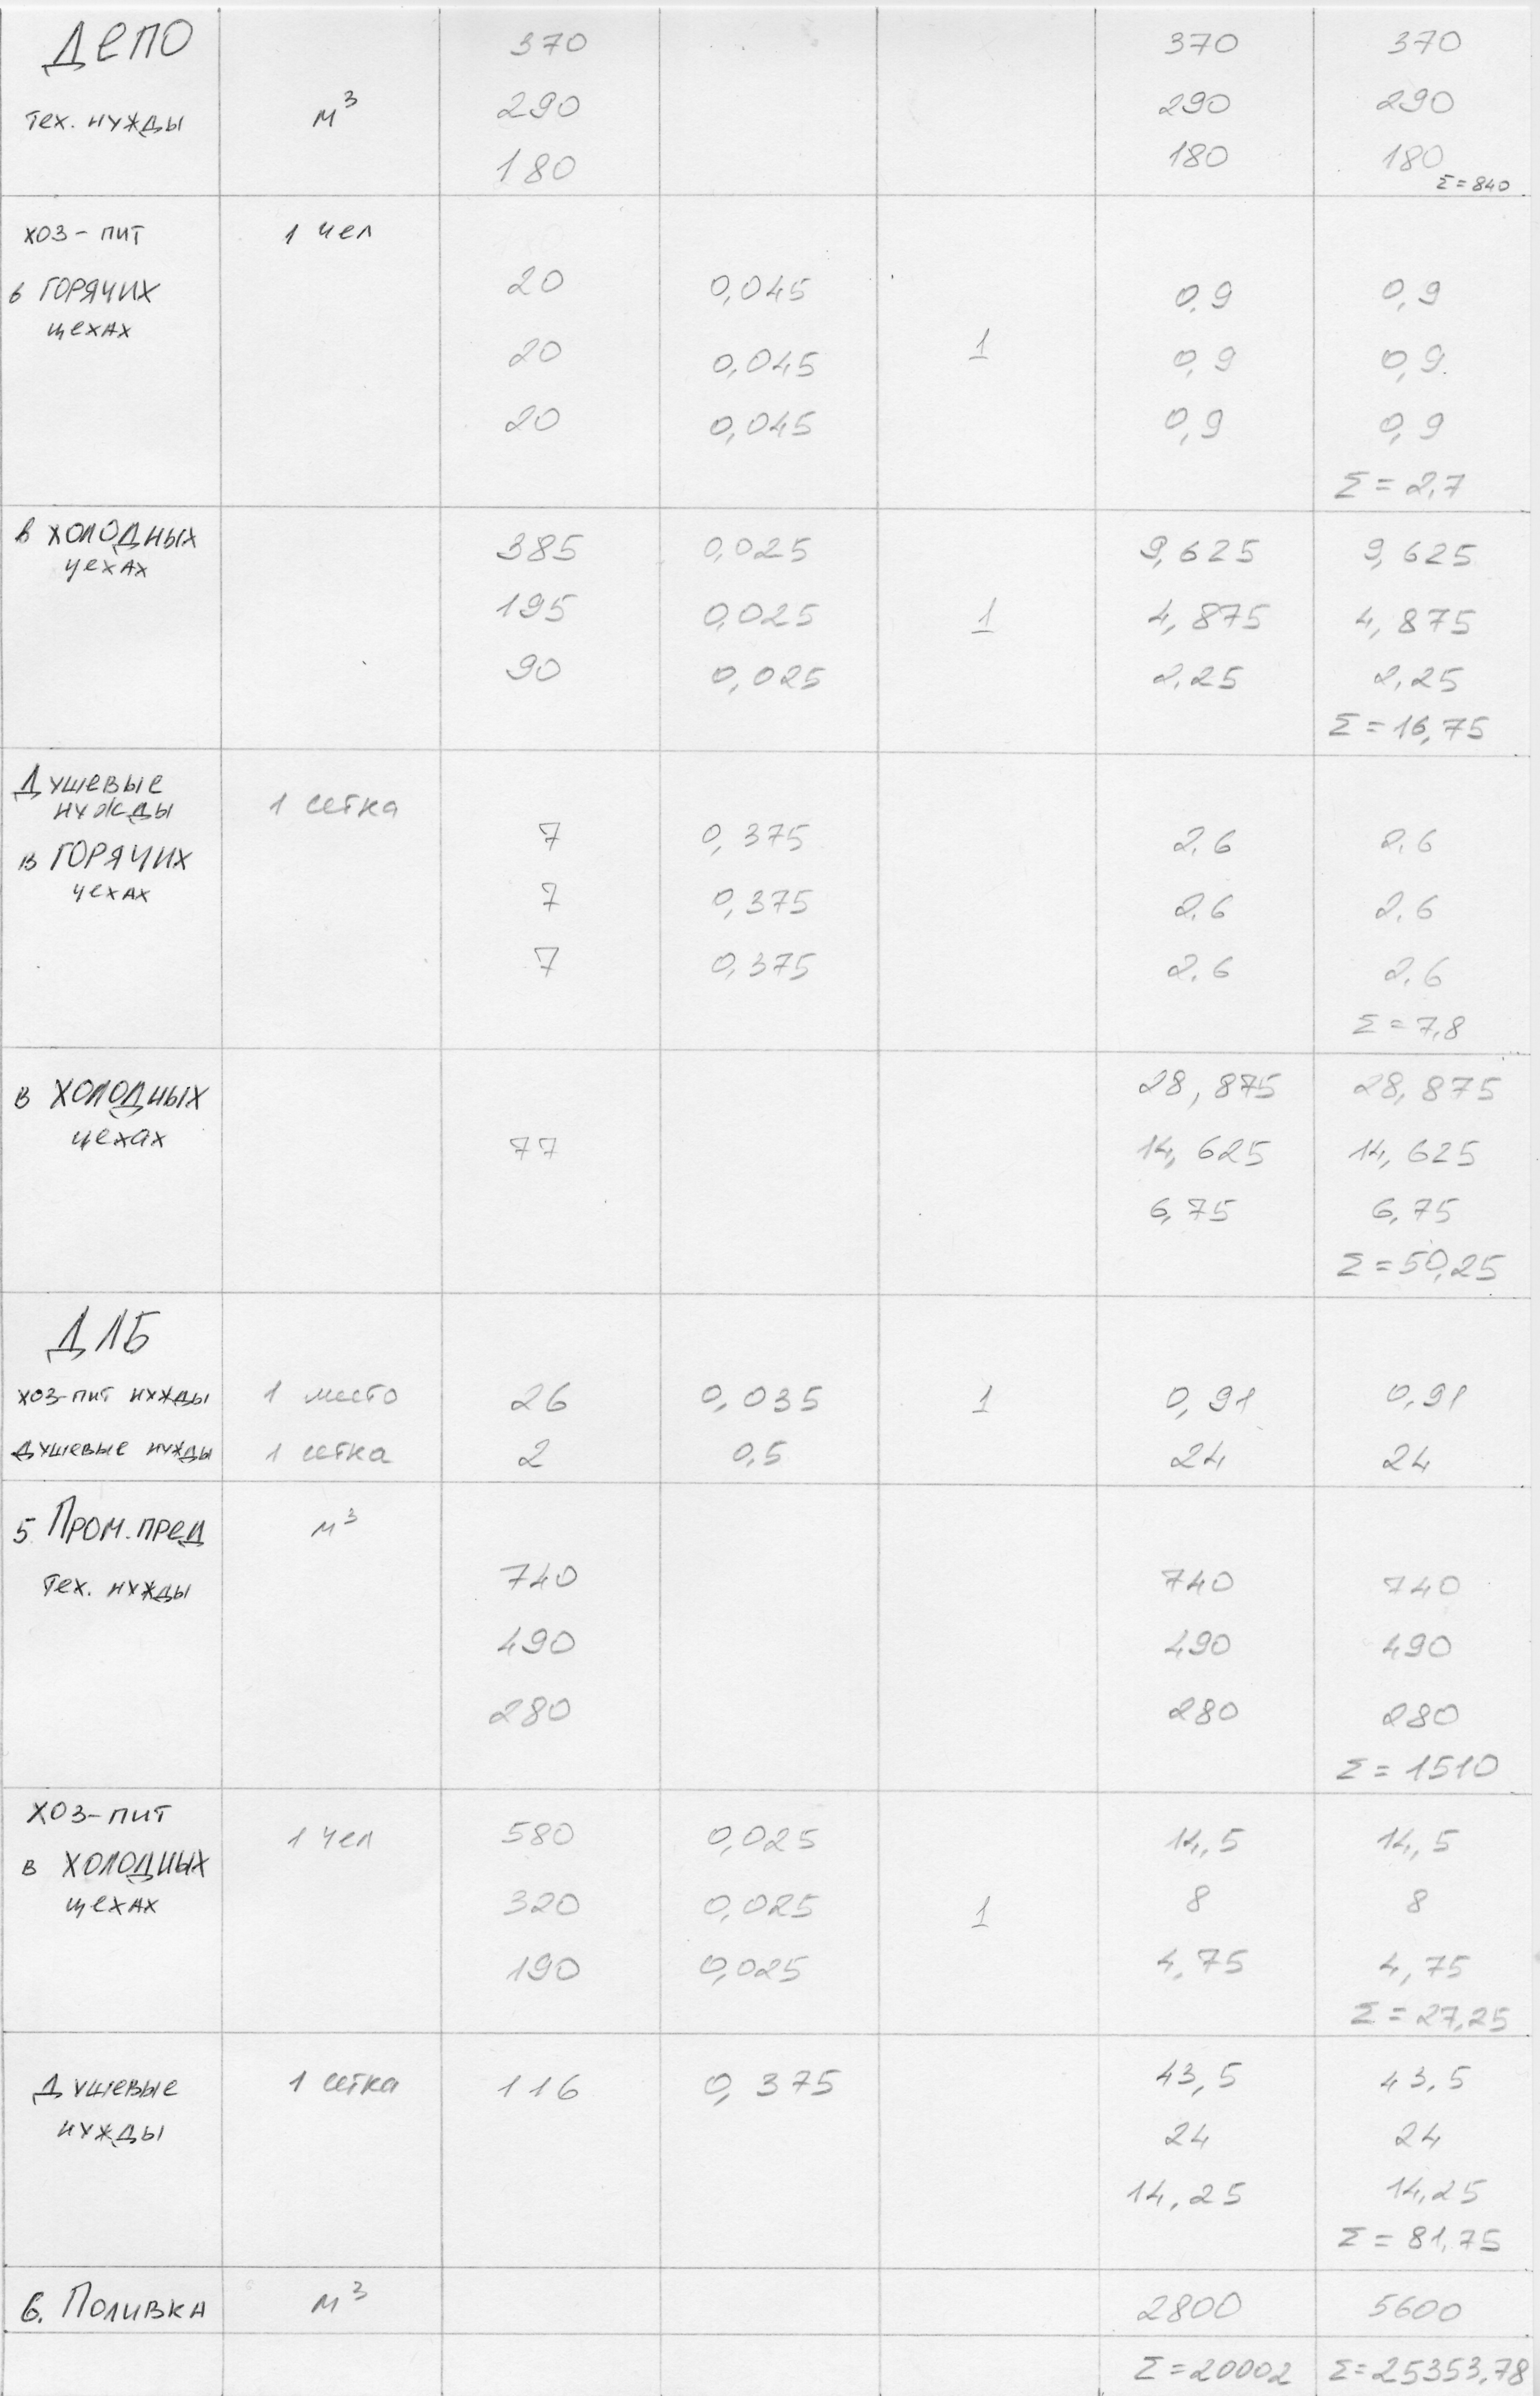 ДЕПО 370 370 370
тех. нужды м³ 290 290 290
180 180 180
Σ=840
хоз-пит 1 чел
в горячих 20 0,045 0,9 0,9
цехах
20 0,045 1 0,9 0,9
20 0,045 0,9 0,9
Σ = 2,7
в холодных 385 0,025 9,625 9,625
цехах
195 0,025 1 4,875 4,875
90 0,025 2,25 2,25
Σ = 16,75
Душевые
нужды 1 сетка
7 0,375 2,6 2,6
в горячих
цехах 7 0,375 2,6 2,6
7 0,375 2,6 2,6
Σ = 7,8
в холодных 28,875 28,875
цехах 77 14,625 14,625
6,75 6,75
Σ = 50,25
ДЛБ
хоз-пит нужды 1 место 26 0,035 1 0,91 0,91
душевые нужды 1 сетка 2 0,5 24 24
5 Пром. пред м³
тех. нужды 740 740 740
490 490 490
280 280 280
Σ = 1510
хоз-пит
1 чел 580 0,025 14,5 14,5
в холодных
цехах 320 0,025 1 8 8
190 0,025 4,75 4,75
Σ = 27,25
Душевые 1 сетка 116 0,375 43,5 43,5
нужды 24 24
14,25 14,25
Σ = 81,75
6. Поливка м³ 2800 5600
Σ=20002 Σ=25353,78